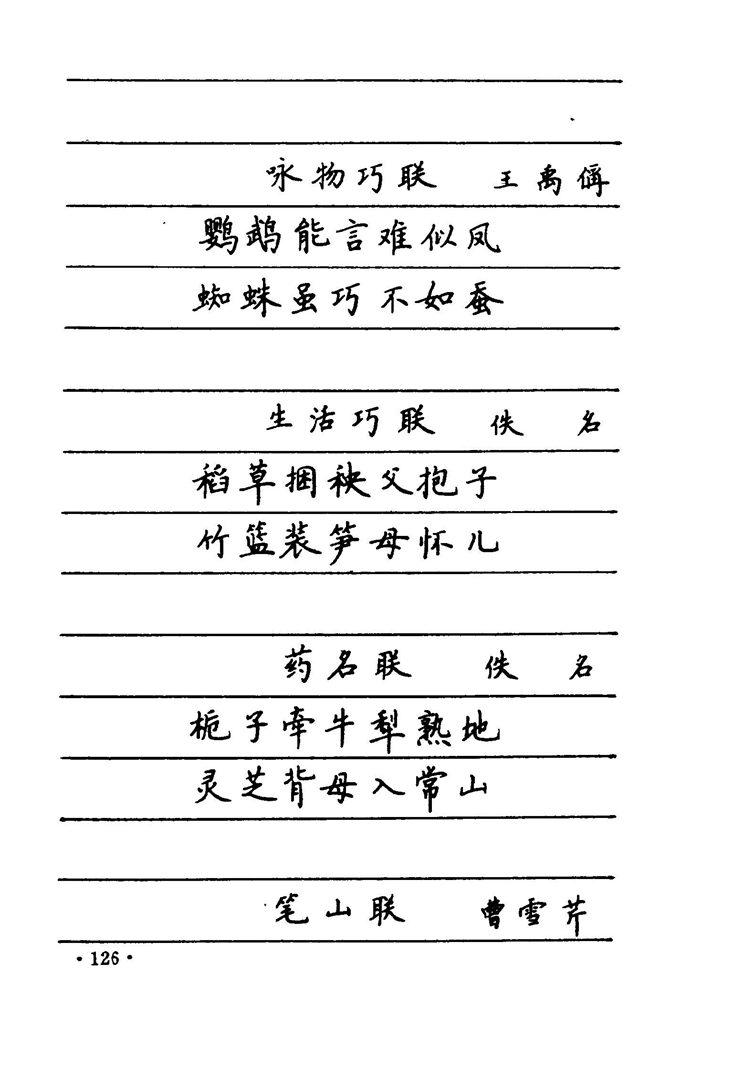 咏物巧联 王禹偁
鹦鹉能言难似凤
蜘蛛虽巧不如蚕
生活巧联 佚 名
稻草捆秧父抱子
竹篮装笋母怀儿
药名联 佚 名
栀子牵牛犁熟地
灵芝背母入常山
笔山联 曹雪芹
·126·